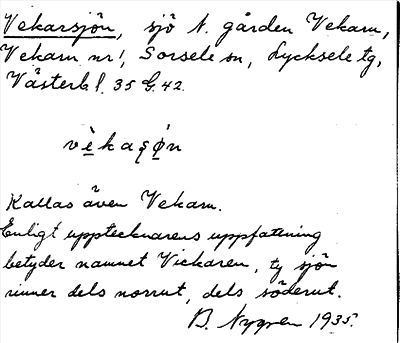 Vekarsjön, sjö t. gården Vekarn,
Vekarn nr 1, Sorsele sn, Lycksele tg,
Västerb l. 35 G. 42.
vèkaşǿn
Kallas även Vekarn.
Enligt upptecknarens uppfattning
betyder namnet Vickaren, ty sjön
rinner dels norrut, dels söderut.
B. Nygren 1935.